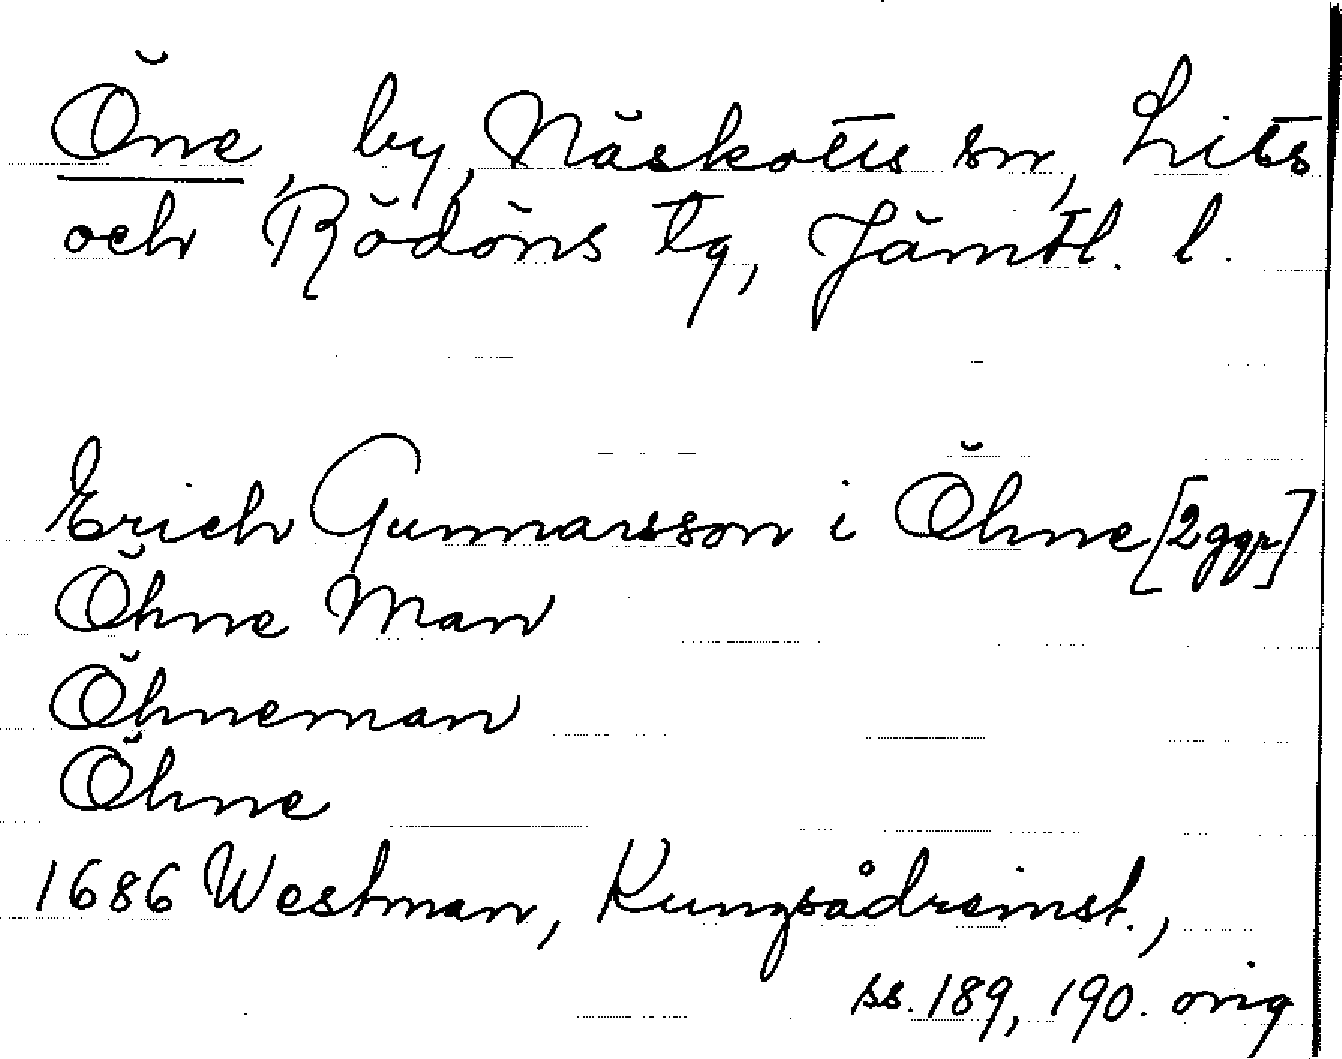 Öne, by, Näskotts sn, Lits
och Rödöns tg, Jämtl. l.
Erich Gunnarsson i Öhne [2 ggr]
Öhne Man
Öhneman
Öhne
1686 Westman, Kungsådreinst.,
ss. 189, 190. orig